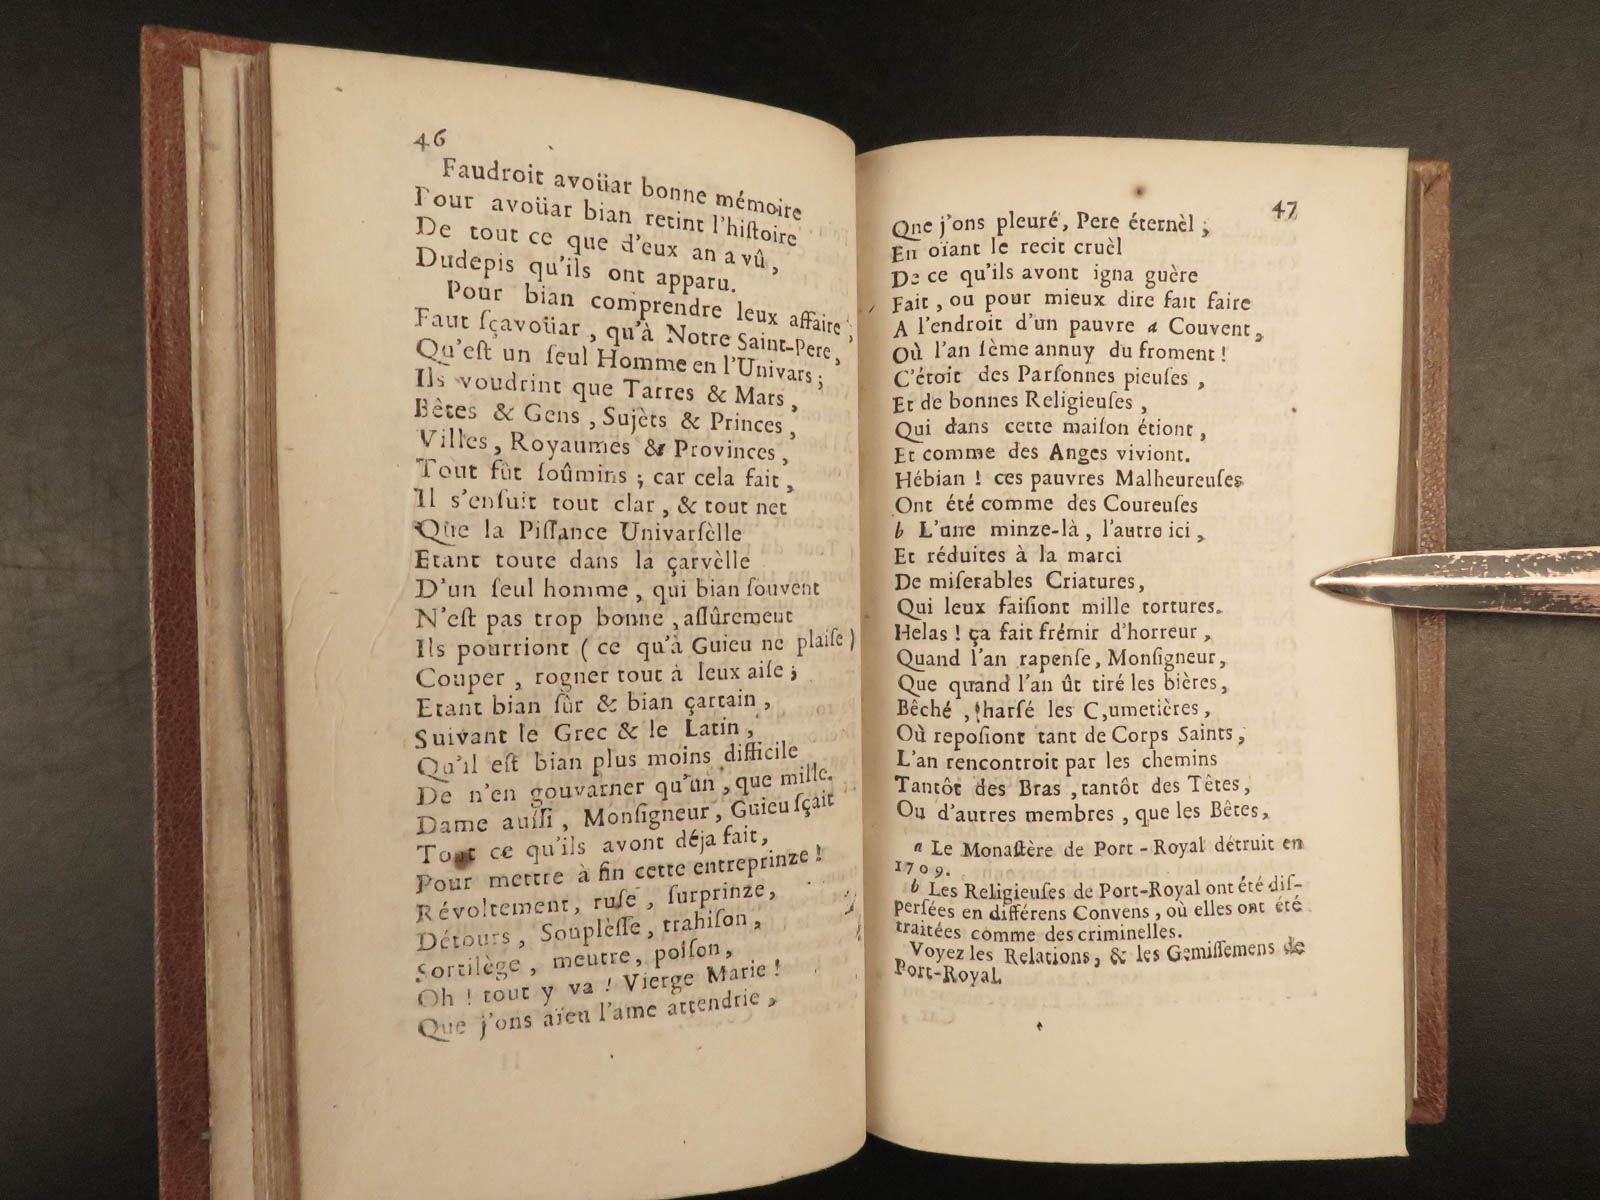 46
Faudroit avoüar bonne mémoire
Pour avoüar bian retint l'hiſtoire
De tout ce que d'eux an a vû,
Dudepis qu'ils ont apparu.
Pour bian comprendre leux affaire,
Faut ſçavoüar, qu'à Notre Saint-Pere,
Qu'eſt un ſeul Homme en l'Univars;
Ils voudrint que Tarres & Mars,
Bêtes & Gens, Sujèts & Princes,
Villes, Royaumes & Provinces,
Tout fût ſoûmins; car cela fait,
Il s'enſuit tout clar, & tout net
Que la Piſſance Univarſèlle
Etant toute dans la çarvèlle
D'un ſeul homme, qui bian ſouvent
N'eſt pas trop bonne, aſſûrement
Ils pourriont (ce qu'à Guieu ne plaiſe)
Couper, rogner tout à leux aiſe;
Etant bian ſûr & bian çartain,
Suivant le Grec & le Latin,
Qu'il eſt bian plus moins difficile
De n'en gouvarner qu'un, que mille.
Dame auſſi, Monſigneur, Guieu ſçait
Tout ce qu'ils avont déja fait,
Pour mettre à fin cette entreprinze!
Révoltement, ruſe, ſurprinze,
Détours, Souplèſſe, trahiſon,
Sortilège, meutre, poiſon,
Oh! tout y va! Vierge Marie!
Que j'ons aïeu l'ame attendrie,
47
Que j'ons pleuré, Pere éternèl;
En oïant le recit cruèl
De ce qu'ils avont igna guère
Fait, ou pour mieux dire fait faire
A l'endroit d'un pauvre a Couvent,
Où l'an ſème annuy du froment!
C'étoit des Parſonnes pieuſes,
Et de bonnes Religieuſes,
Qui dans cette maiſon étiont,
Et comme des Anges viviont.
Hébian! ces pauvres Malheureuſes
Ont été comme des Coureuſes
b L'une minze-là, l'autre ici,
Et réduites à la marci
De miſerables Criatures,
Qui leux faiſiont mille tortures.
Helas! ça fait frémir d'horreur,
Quand l'an rapenſe, Monſigneur,
Que quand l'an ût tiré les bières,
Bêché, harſé les Cumetières,
Où repoſiont tant de Corps Saints,
L'an rencontroit par les chemins
Tantôt des Bras, tantôt des Têtes,
Ou d'autres membres, que les Bêtes,
a Le Monaſtère de Port-Royal détruit en
1709.
b Les Religieuſes de Port-Royal ont été diſ-
perſées en différens Convens, où elles ont été
traitées comme des criminelles.
Voyez les Relations, & les Gemiſſemens de
Port-Royal.